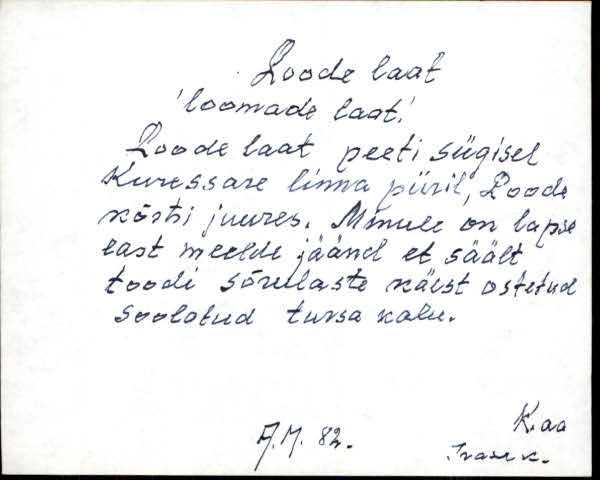 Loode laat
'loomade laat'
Loode laat peeti sügisel
Kuressare linna piiril, Loode
kõrtsi juures. Minule on lapse
east meelde jäänd et säält
toodi sõrulaste käest ostetud
soolatud tursa kalu.
A.M. 82.
Kaa